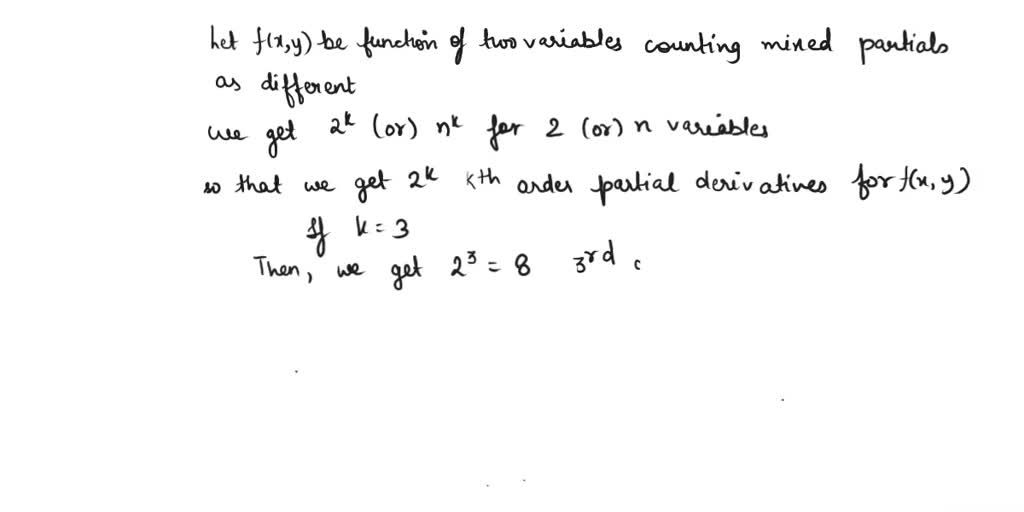 Let f(x,y) be function of two variables counting mixed partials
as different
we get 2^k (or) n^k for 2 (or) n variables
so that we get 2^k kth order partial derivatives for f(x,y)
If k = 3
Then, we get 2^3 = 8 3rd c